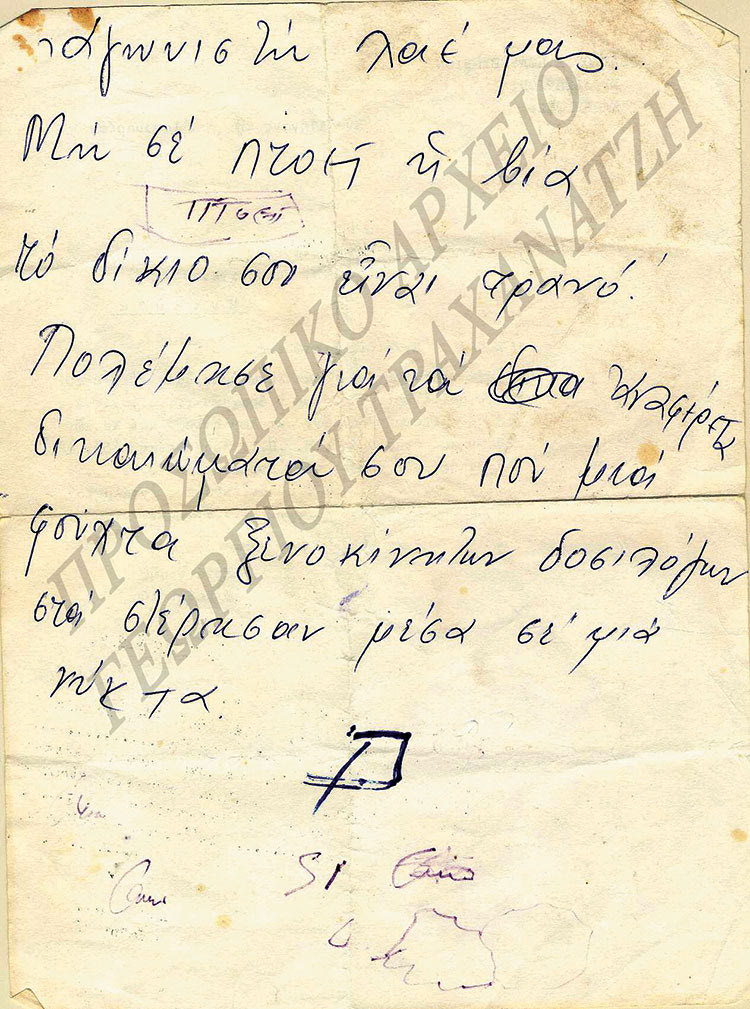 ἀγωνιστή λαέ μας.
Μή σέ πτοεῖ ἡ βία
πτοεῖ
τό δίκιο σου εἶναι τρανό!
Πολέμησε γιά τά ἀναφέρετα
δικαιώματά σου πού μιά
φούχτα ξενοκίνητων δοσιλόγων
στά στέρησαν μέσα σέ μιά
νύχτα.
ΠΡΟΣΩΠΙΚΟ ΑΡΧΕΙΟ
ΓΕΩΡΓΙΟΥ ΤΡΑΧΑΝΑΤΖΗ